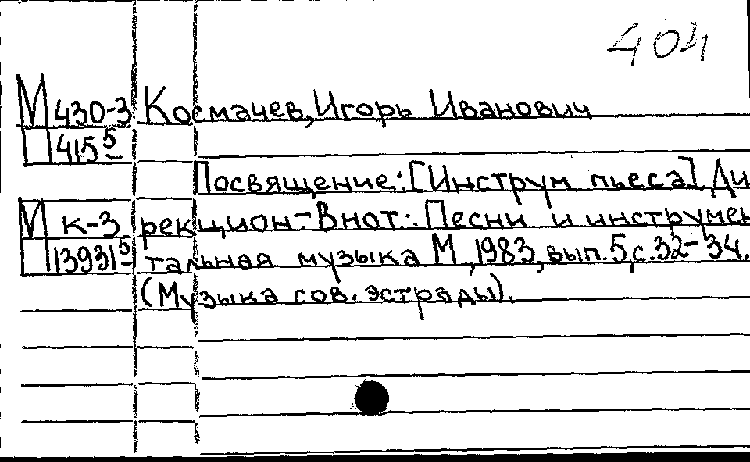 404
М 430-3 Космачев, Игорь Иванович
П 415 5
Посвящение: [Инструм пьеса]. Ди
М к-3 рекцион.- В нот.: Песни и инструмен
П 13931 5 тальная музыка М., 1983, вып. 5, с. 32-34.
(Музыка сов. эстрады).